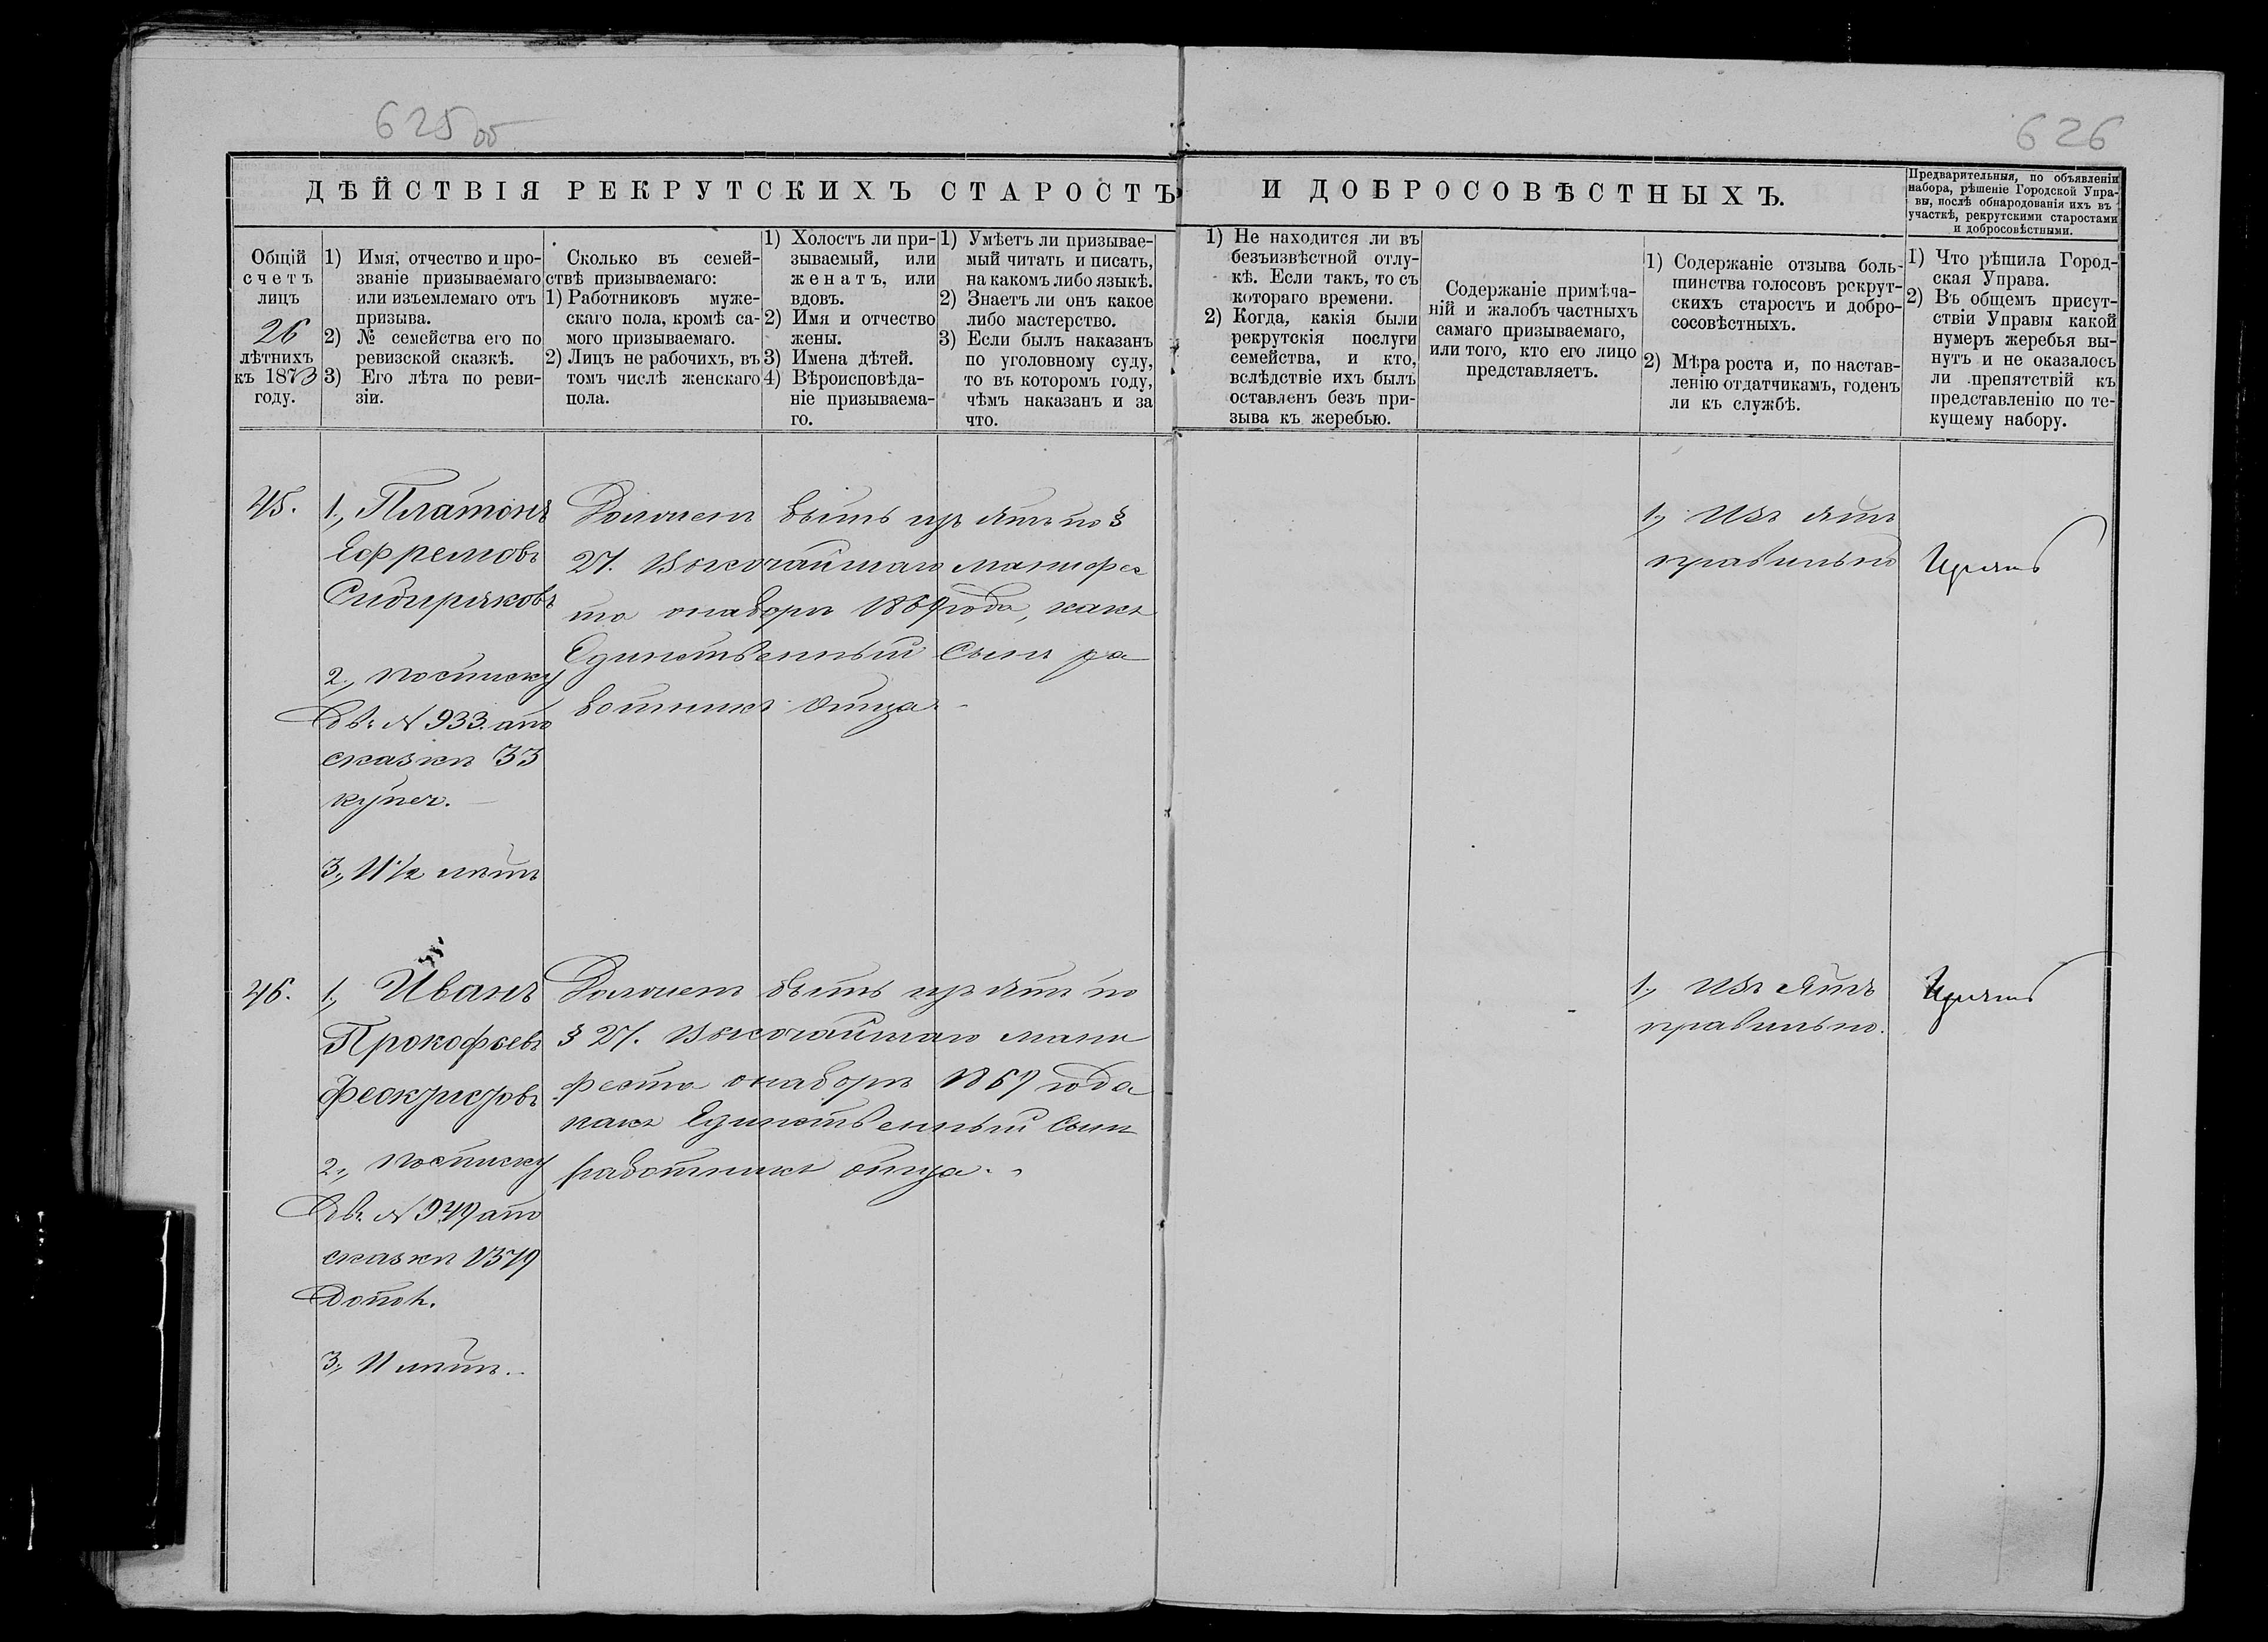 625 об
626
ДѢЙСТВІЯ РЕКРУТСКИХЪ СТАРОСТЪ
И ДОБРОСОВѢСТНЫХЪ.
Предварительныя, по объявленіи
набора, рѣшеніе Городской Упра-
вы, послѣ обнародованія ихъ въ
участкѣ, рекрутскими старостами
и добросовѣстными.
Общій
счетъ
лицъ
26
лѣтнихъ
къ 1873
году.
1) Имя, отчество и про-
званіе призываемаго
или изъемлемаго отъ
призыва.
2) № семейства его по
ревизской сказкѣ.
3) Его лѣта по реви-
зіи.
Сколько въ семей-
ствѣ призываемаго:
1) Работниковъ муже-
скаго пола, кромѣ са-
мого призываемаго.
2) Лицъ не рабочихъ, въ
томъ числѣ женскаго
пола.
1) Холостъ ли при-
зываемый, или
женатъ, или
вдовъ.
2) Имя и отчество
жены.
3) Имена дѣтей.
4) Вѣроисповѣда-
ніе призываема-
го.
1) Умѣетъ ли призывае-
мый читать и писать,
на какомъ либо языкѣ.
2) Знаетъ ли онъ какое
либо мастерство.
3) Если былъ наказанъ
по уголовному суду,
то въ которомъ году,
чѣмъ наказанъ и за
что.
1) Не находится ли въ
безъизвѣстной отлу-
кѣ. Если такъ, то съ
котораго времени.
2) Когда, какія были
рекрутскія послуги
семейства, и кто,
вслѣдствіе ихъ былъ
оставленъ безъ при-
зыва къ жеребью.
Содержаніе примѣча-
ній и жалобъ частныхъ
самаго призываемаго,
или того, кто его лицо
представляетъ.
1) Содержаніе отзыва боль-
шинства голосовъ рекрут-
скихъ старостъ и добро-
сосовѣстныхъ.
2) Мѣра роста и, по настав-
ленію отдатчикамъ, годенъ
ли къ службѣ.
1) Что рѣшила Город-
ская Управа.
2) Въ общемъ присут-
ствіи Управы какой
нумеръ жеребья вы-
нутъ и не оказалось
ли препятствій къ
представленію по те-
кущему набору.
45.
1., Платонъ
Ефремовъ
Сибиряковъ
2., по списку
№ 933. ато
сказки 33
купеч.
3., 11½ лѣтъ
Долженъ быть изъятъ по §
27. Высочайшаго манифес
та о наборѣ 1869 года, какъ
Единственный Сынъ ра
ботникъ отца.
1., Изъятъ
правильно
Изъять
46.
1., Иванъ
Прокофьевъ
Феоктистовъ
2., по списку
№ 949 ато
сказки 1379
3., 11 лѣтъ.
Долженъ быть изъятъ по
§ 27. Высочайшаго мани
феста о наборѣ 1869 года
какъ Единственный Сынъ
работникъ отца.
1., Изъятъ
правильно.
Изъять